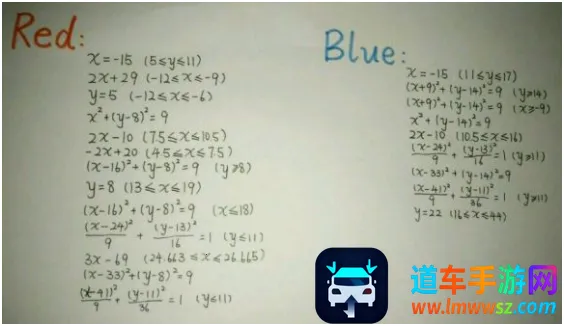 Red:
x = -15 (5≤y≤11)
2x+29 (-12≤x≤-9)
y=5 (-12≤x≤-6)
x²+(y-8)²=9
2x-10 (7.5≤x≤10.5)
-2x+20 (4.5≤x≤7.5)
(x-16)²+(y-8)²=9 (y≥8)
y=8 (13≤x≤19)
(x-16)²+(y-8)²=9 (x≤18)
(x-24)²/9 + (y-13)²/16 = 1 (y≤11)
3x-69 (24.663≤x≤26.665)
(x-33)²+(y-8)²=9
(x-41)²/9 + (y-11)²/36 = 1 (y≤11)
Blue:
x=-15 (11≤y≤17)
(x+9)²+(y-14)²=9 (y≥14)
(x+9)²+(y-14)²=9 (x≥-9)
x²+(y-14)²=9
2x-10 (10.5≤x≤16)
(x-24)²/9 + (y-13)²/16 = 1 (y≥11)
(x-33)²+(y-14)²=9
(x-41)²/9 + (y-11)²/36 = 1 (y≥11)
y=22 (16≤x≤44)
道车手游网
www.lmwwsz.com